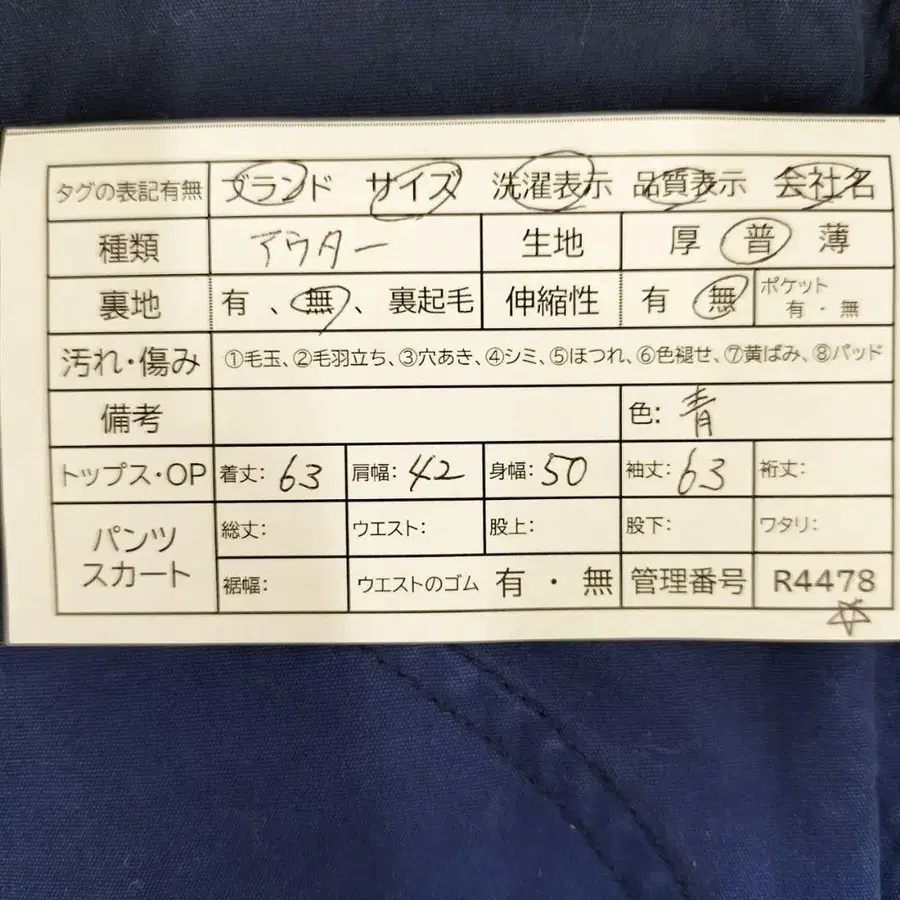 タグの表記有無 ブランド サイズ 洗濯表示 品質表示 会社名
種類 アウター 生地 厚 普 薄
裏地 有 、無、裏起毛 伸縮性 有 無 ポケット 有・無
汚れ・傷み ①毛玉、②毛羽立ち、③穴あき、④シミ、⑤ほつれ、⑥色褪せ、⑦黄ばみ、⑧パッド
備考 色: 青
トップス・OP 着丈: 63 肩幅: 42 身幅: 50 袖丈: 63 裄丈:
パンツ スカート 総丈: ウエスト: 股上: 股下: ワタリ:
裾幅: ウエストのゴム 有・無 管理番号 R4478